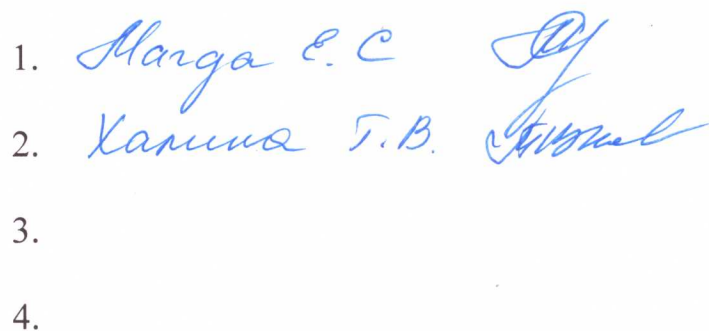 1. Магда Е.С
2. Халина Т.В.
3.
4.